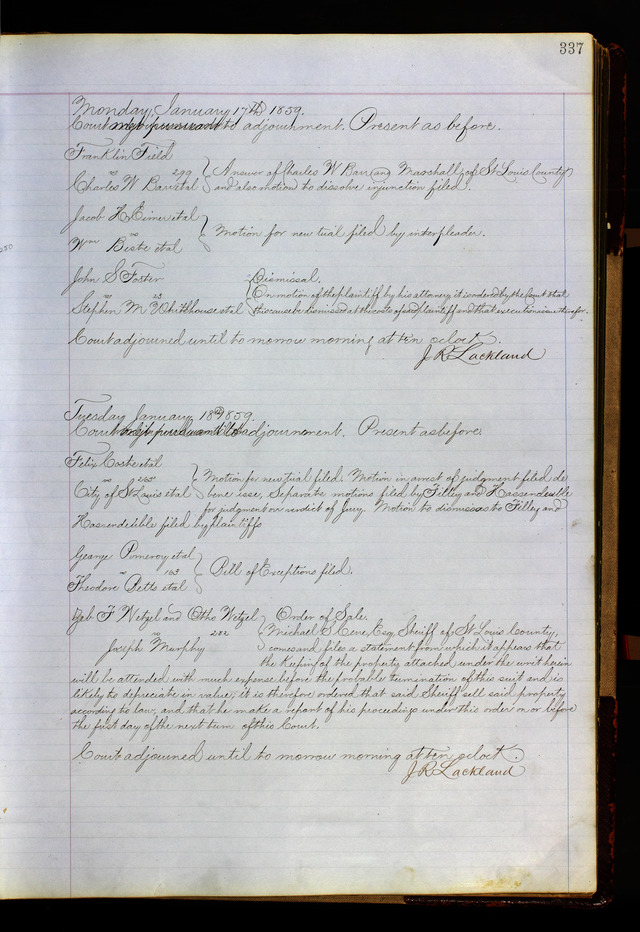 337
Monday, January 17th 1859.
Court met pursuant to adjournment. Present as before.
Franklin Field
vs 299
Charles W Barr et al
Answer of Charles W Barr and Marshall of St Louis County
and also motion to dissolve injunction filed.
Jacob H. Eimer et al
vs
Wm Beste et al
Motion for new trial filed by interpleader.
250
John S Foster
vs 23
Stephen M Whithouse et al
Dismissal.
On motion of the plaintiff by his attorney it is ordered by the Court that
this cause be dismissed at the costs of said plaintiff and that execution issue therefor.
Court adjourned until to morrow morning at ten oclock.
J R Lackland
Tuesday January 18th 1859.
Court met pursuant to adjournment. Present as before.
Felix Coste et al
vs
City of St Louis et al
Motion for new trial filed. Motion in arrest of judgment filed de
bene esse, Separate motions filed by Filley and Hassendeible
for judgment on verdict of Jury. Motion to dismiss as to Filley and
Hassendeible filed by plaintiffs
George Pomeroy et al
vs 163
Theodore Betts et al
Bill of Exceptions filed.
F Wetzel and Otho Wetzel
vs 282
Joseph Murphy
Order of Sale.
Michael S Cere, Esq, Sheriff of St Louis County,
comes and files a statement from which it appears that
the Keeping of the property attached under the writ herein
will be attended with much expense before the probable termination of this suit and is
likely to depreciate in value; it is therefore ordered that said Sheriff sell said property
according to law, and that he make a report of his proceedings under this order on or before
the first day of the next term of this Court.
Court adjourned until to morrow morning at ten oclock.
J R Lackland